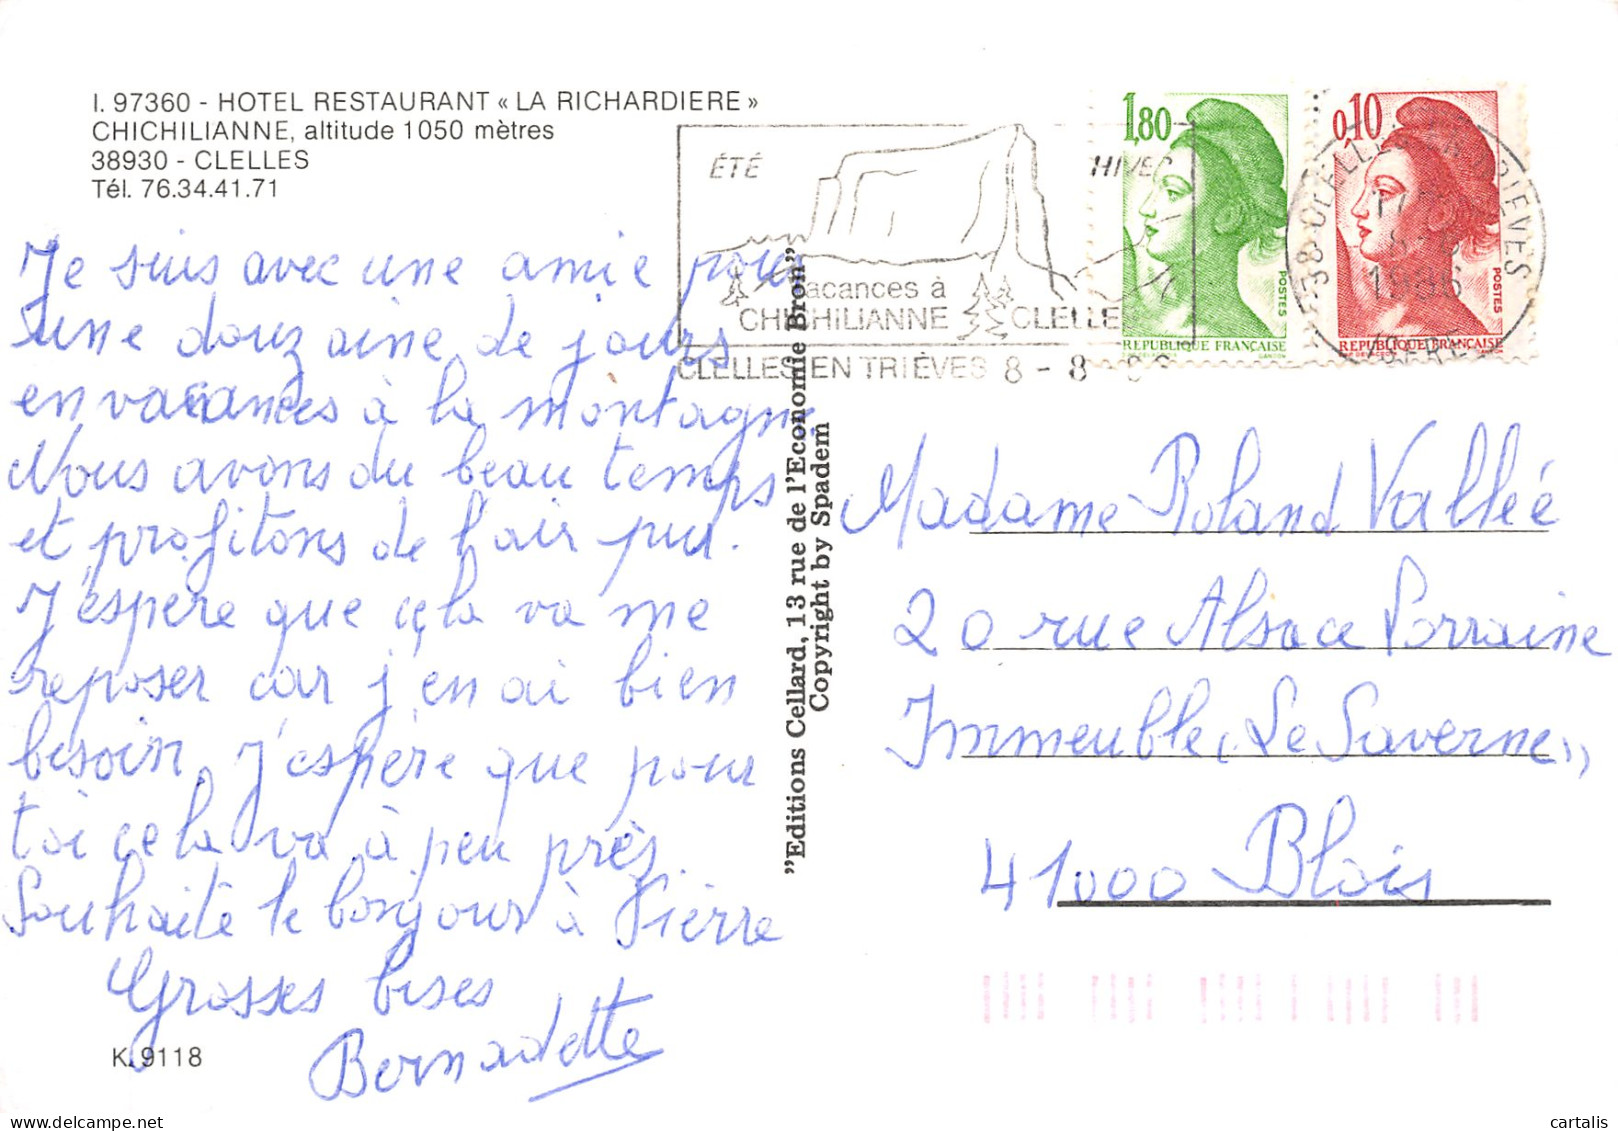 I. 97360 - HOTEL RESTAURANT « LA RICHARDIERE »
CHICHILIANNE, altitude 1050 mètres
38930 - CLELLES
Tél. 76.34.41.71
Je suis avec une amie pour
une douzaine de jours
en vacances à la montagne
Nous avons du beau temps
et profitons de l'air pur.
J'éspère que cela va me
reposer car j'en ai bien
besoin, J'espère que pour
toi cela va à peu près,
Souhaite le bonjour à Pierre
Grosses bises
Bernadette
K. 9118
"Editions Cellard, 13 rue de l'Economie Bron"
Copyright by Spadem
ÉTÉ
HIVER
Vacances à
CHICHILIANNE CLELLES
CLELLES EN TRIÈVES 8 - 8
1,80
POSTES
REPUBLIQUE FRANÇAISE
0,10
POSTES
REPUBLIQUE FRANÇAISE
38 CLELLES EN TRIEVES
1986
ISERE
Madame Roland Vallée
20 rue Alsace Lorraine
Immeuble "Le Saverne"
41000 Blois
cartalis